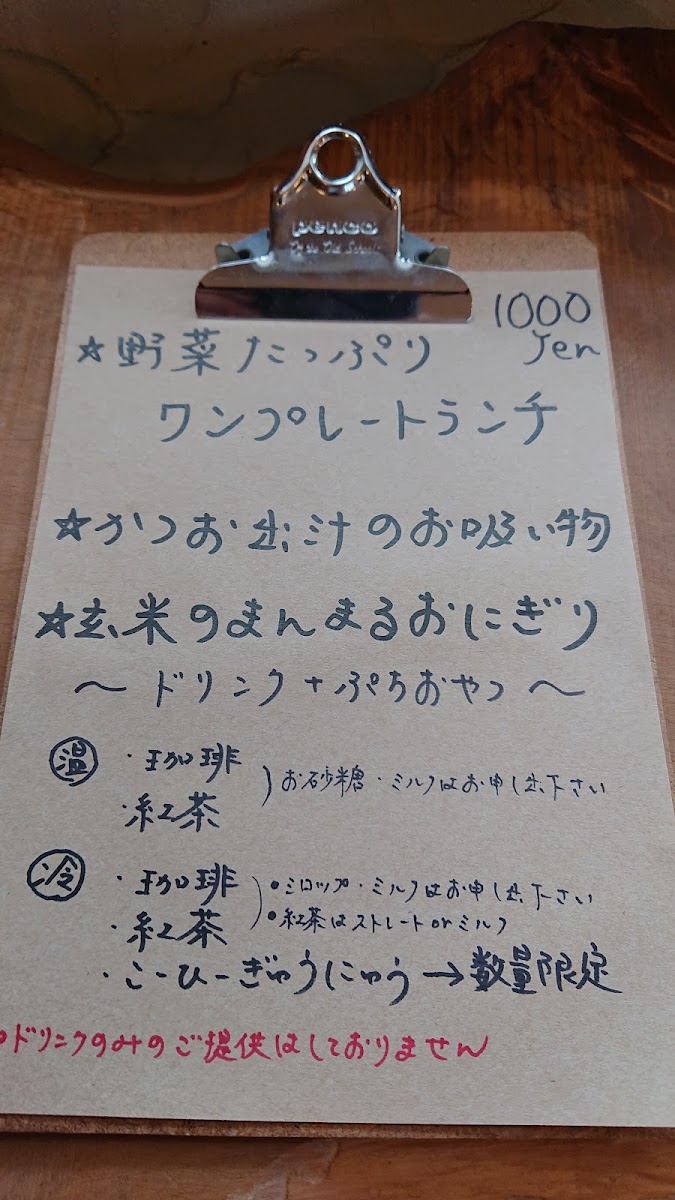 penco
1000
Yen
☆野菜たっぷり
ワンプレートランチ
☆かつお出汁のお吸い物
☆玄米のまんまるおにぎり
〜ドリンク+ぷちおやつ〜
温
・珈琲
・紅茶
お砂糖・ミルクはお申し出下さい
冷
・珈琲
・紅茶
・シロップ・ミルクはお申し出下さい
・紅茶はストレートorミルク
・こーひーぎゅうにゅう→数量限定
・ドリンクのみのご提供はしておりません